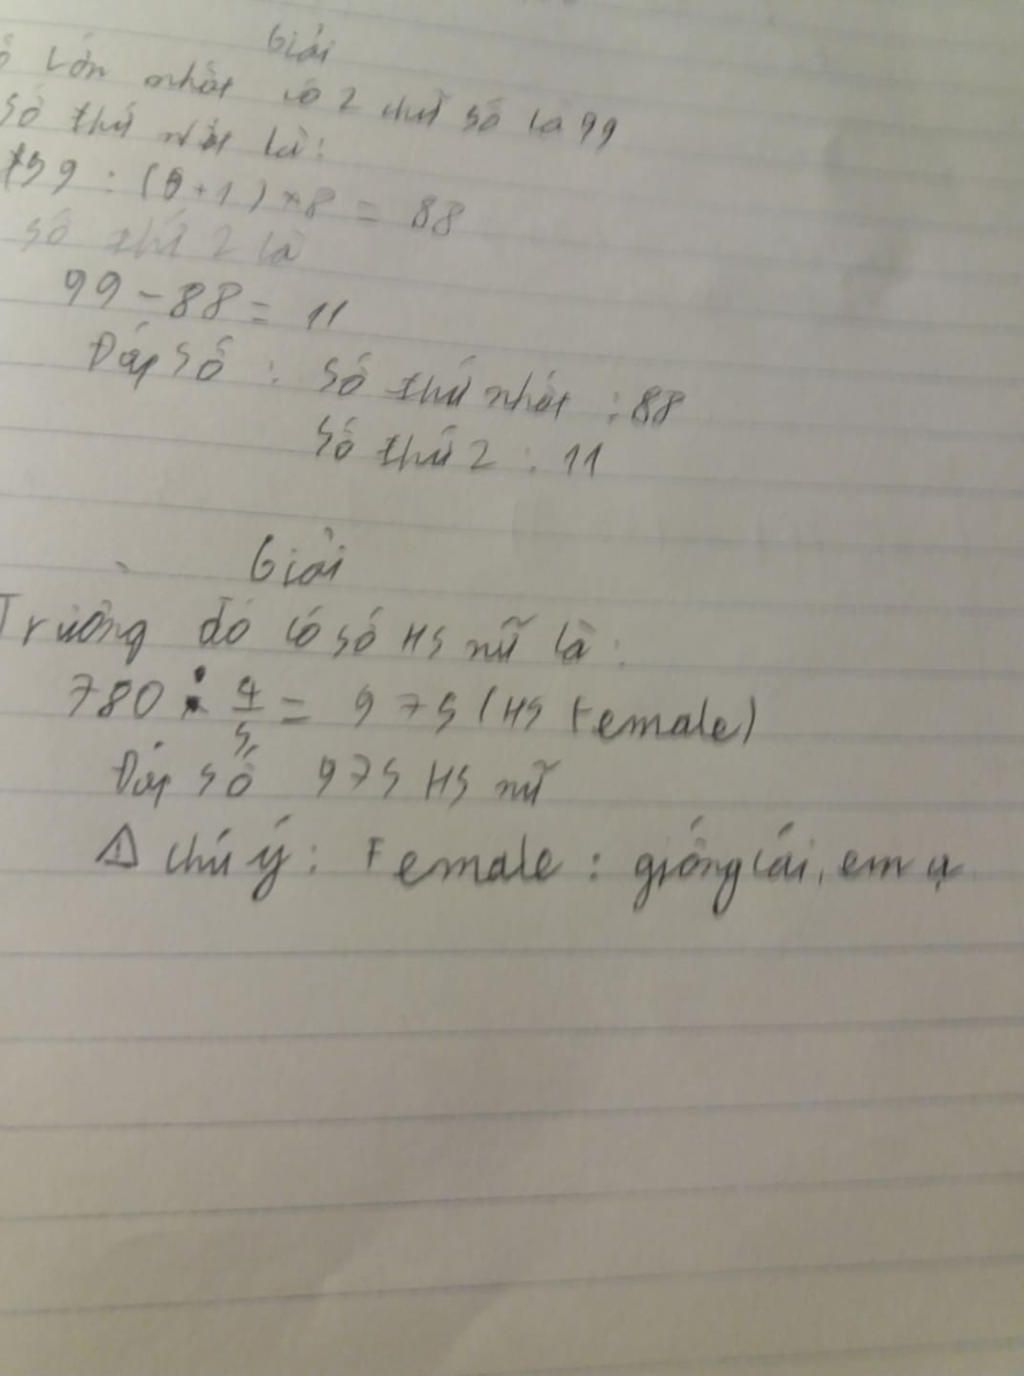 Giải
ố lớn nhất có 2 chữ số là 99
Số thứ nhất là:
99 : (8 + 1) × 8 = 88
số thứ 2 là
99 - 88 = 11
Đáp Số : Số thứ nhất : 88
Số thứ 2 : 11
Giải
Trường đó có số HS nữ là :
780 : 4/5 = 975 (HS Female)
Đáp số 975 HS nữ
⚠ chú ý : Female : giống cái, em ạ